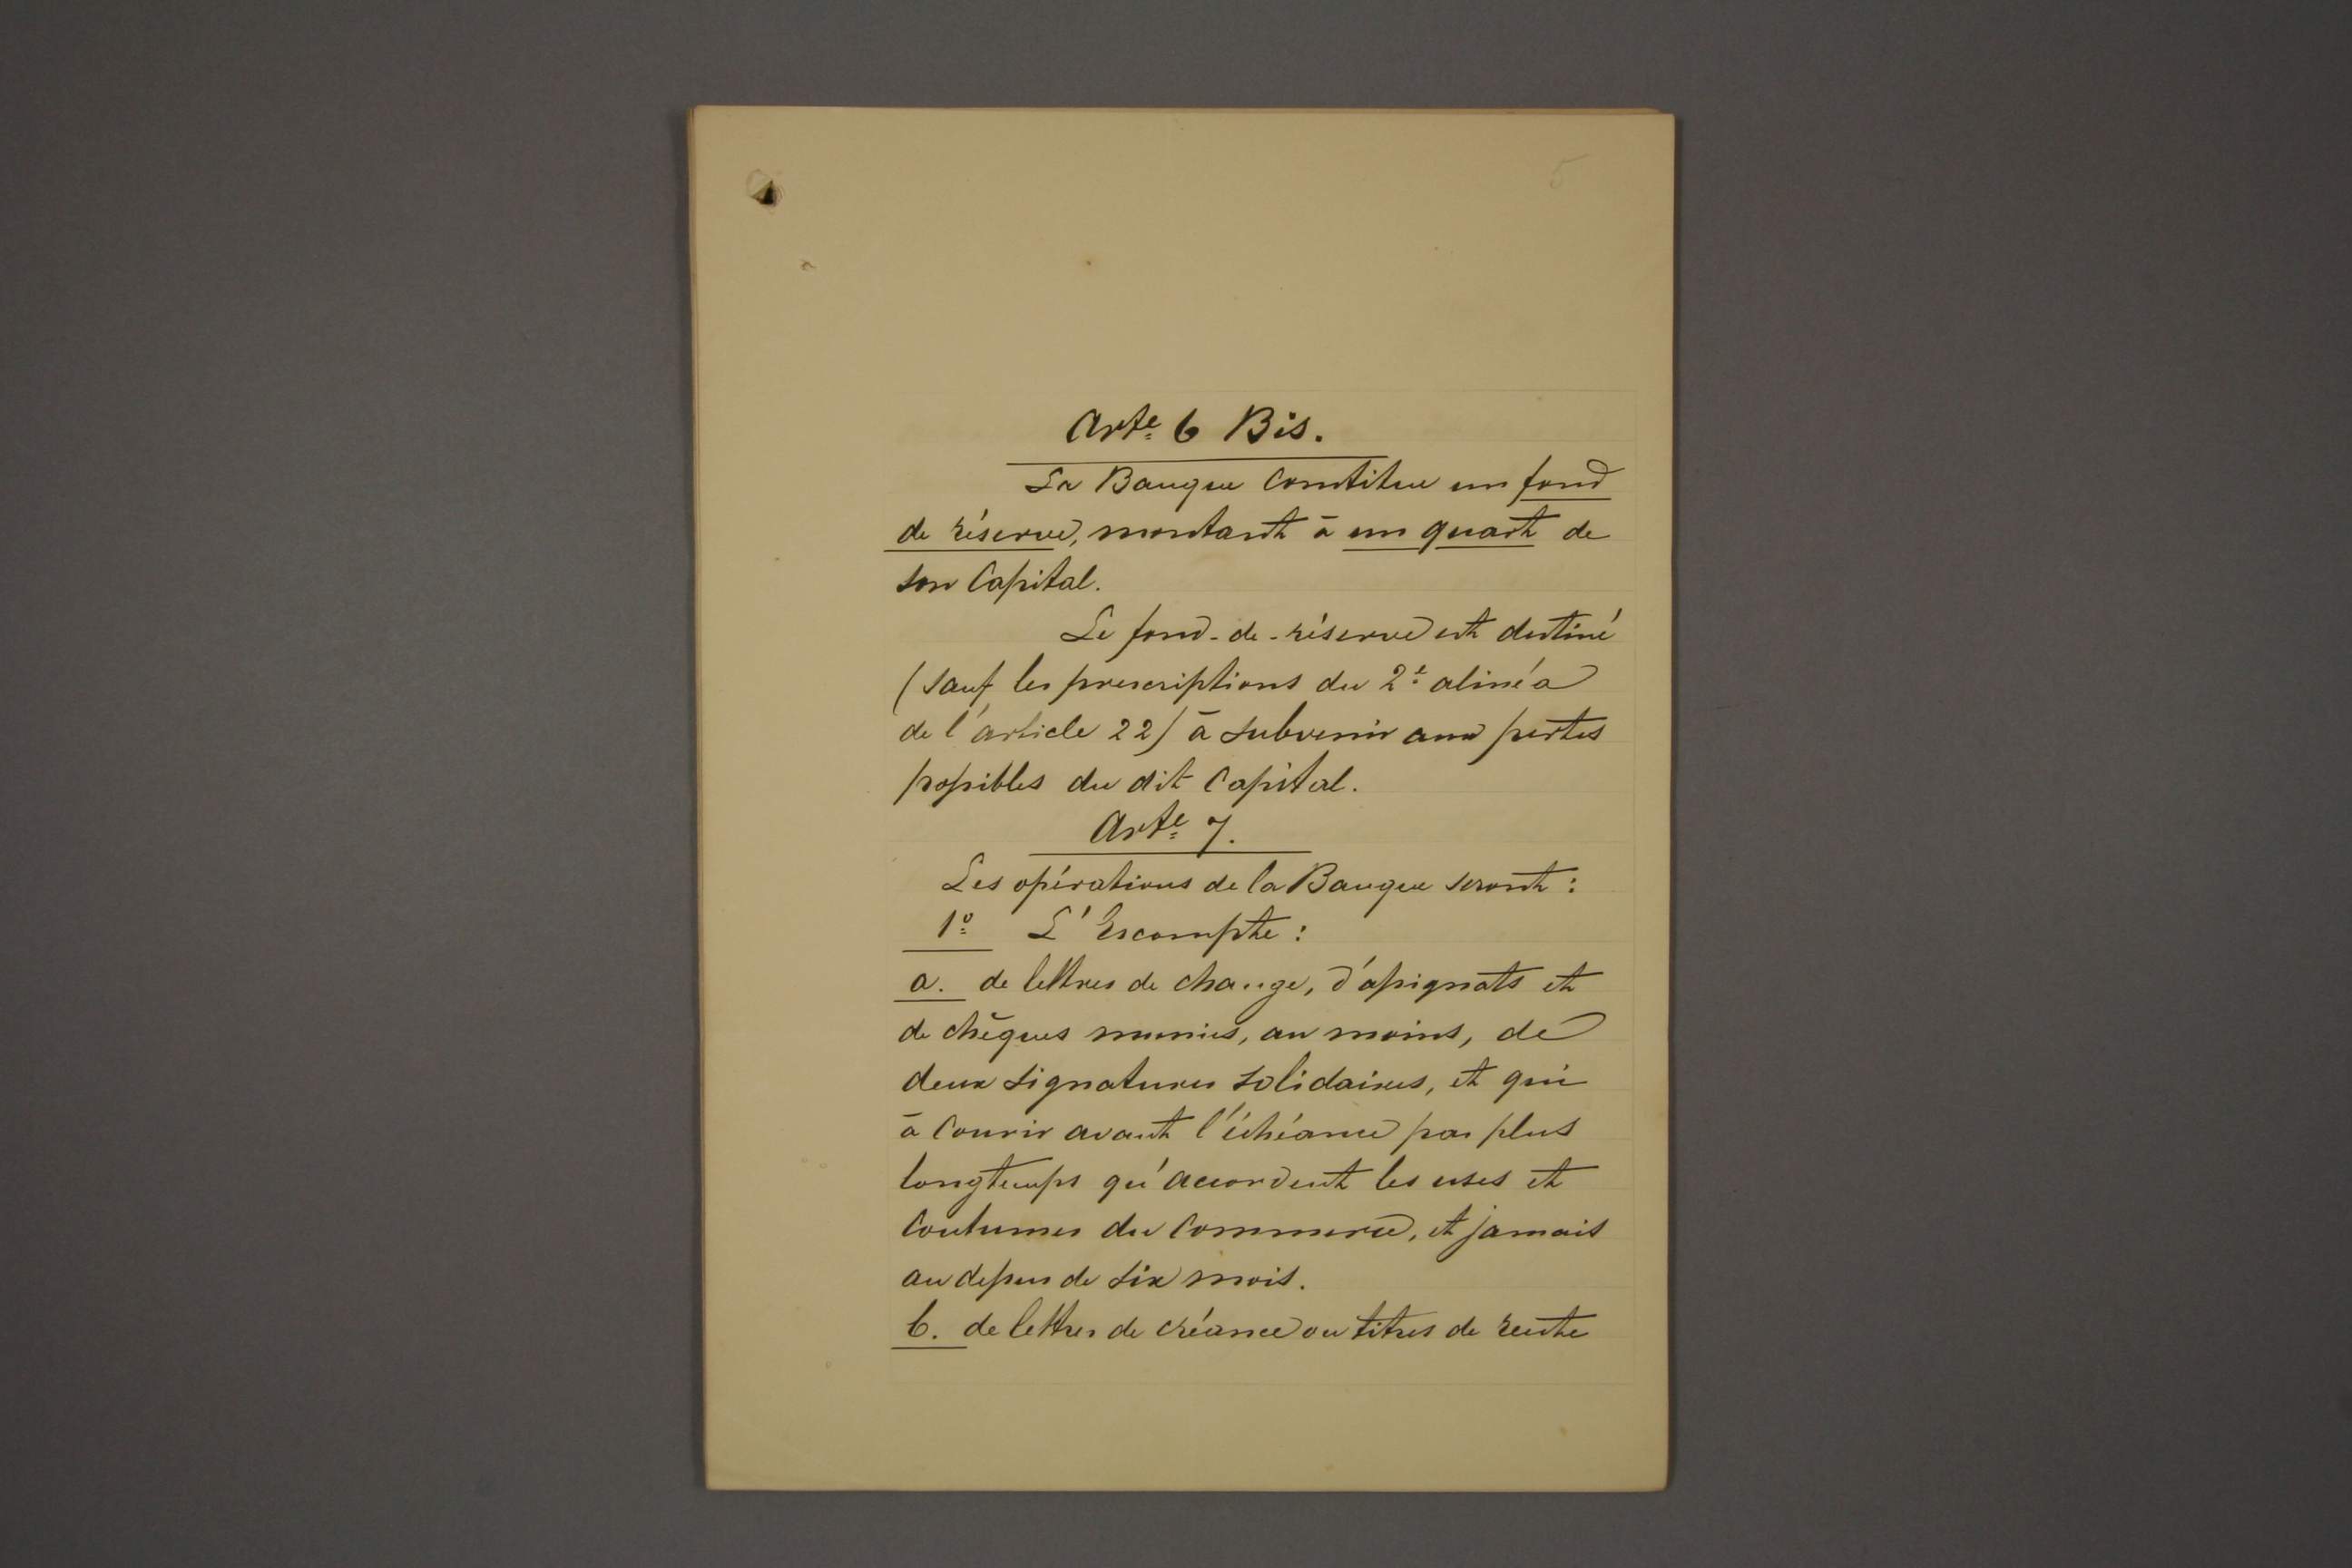 5
Arte 6 Bis.
La Banque Constitue un fond
de réserve, montant à un quart de
son Capital.
Le fond-de-réserve est destiné
(sauf les prescriptions du 2e alinéa
de l'article 22) à subvenir aux pertes
possibles du dit Capital.
Arte 7.
Les opérations de la Banque seront:
1o L'Escompte:
a. de lettres de change, d'assignats et
de chèques munies, au moins, de
deux signatures solidaires, et qui
à Courir avant l'échéance pas plus
longtemps qu'accordent les uses et
Coutumes du Commerce, et jamais
au depus de six mois.
b. de lettres de créance ou titres de rente